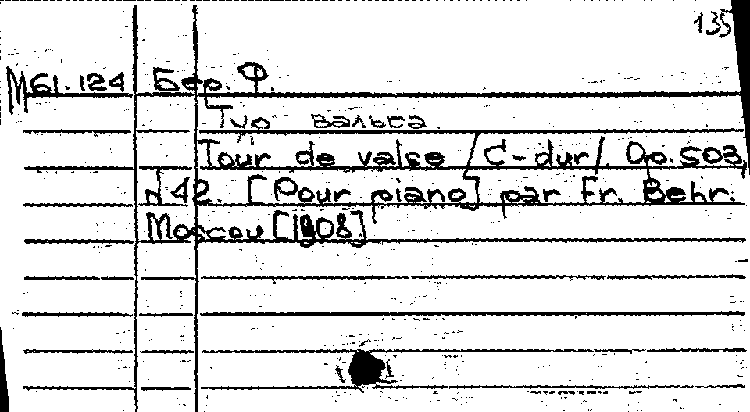 135
М61.124 Бер. Ф.
Тур вальса.
Tour de valse /C-dur/. Op. 503,
N 42. [Pour piano] par Fr. Behr.
Moscou [1908]